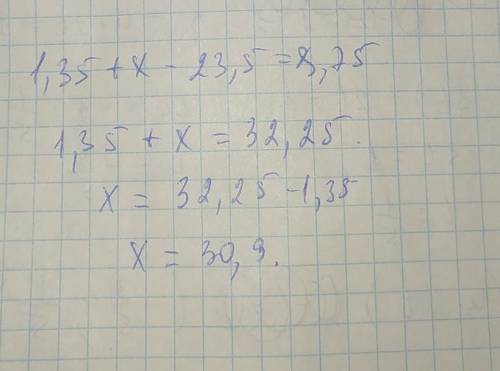 1,35 + x - 23,5 = 8,75
1,35 + x = 32,25.
x = 32,25 - 1,35
x = 30,9.